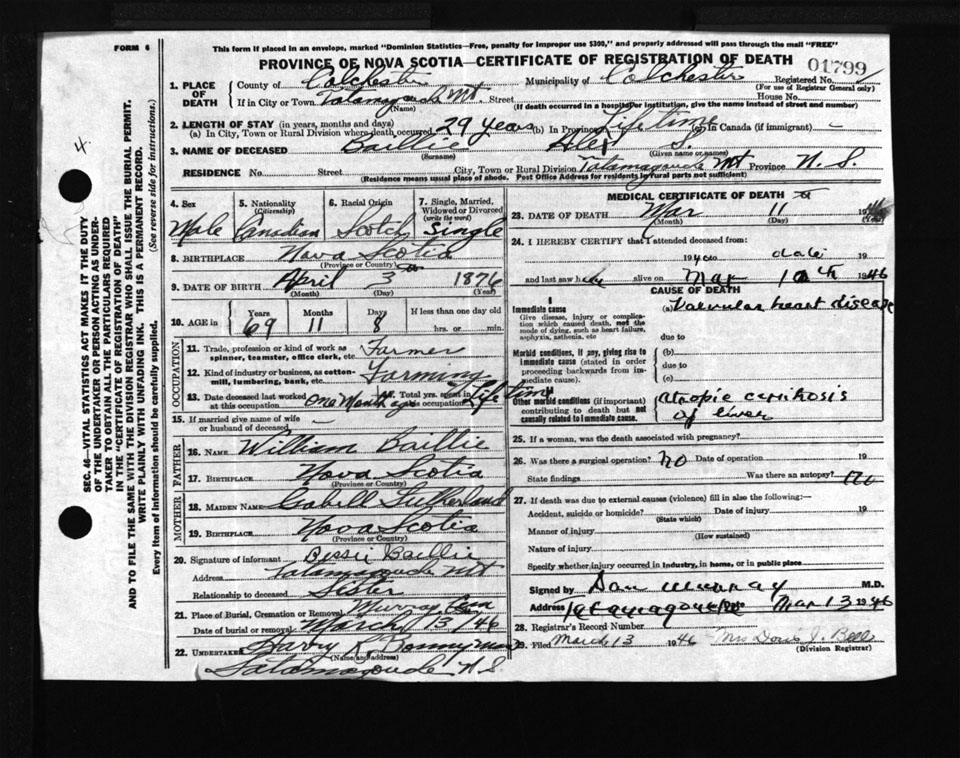 FORM 6
This form if placed in an envelope, marked "Dominion Statistics—Free, penalty for improper use $300," and properly addressed will pass through the mail "FREE"
PROVINCE OF NOVA SCOTIA—CERTIFICATE OF REGISTRATION OF DEATH
01799
SEC. 46—VITAL STATISTICS ACT MAKES IT THE DUTY
OF THE UNDERTAKER OR PERSON ACTING AS UNDER-
TAKER TO OBTAIN ALL THE PARTICULARS REQUIRED
IN THE "CERTIFICATE OF REGISTRATION OF DEATH"
AND TO FILE THE SAME WITH THE DIVISION REGISTRAR WHO SHALL ISSUE THE BURIAL PERMIT.
WRITE PLAINLY WITH UNFADING INK. THIS IS A PERMANENT RECORD.
Every item of information should be carefully supplied. (See reverse side for instructions.)
4.
1. PLACE OF DEATH
County of Colchester Municipality of Colchester Registered No.
(For use of Registrar General only)
If in City or Town Tatamagouche Mt. Street House No.
(Name) (If death occurred in a hospital or institution, give the name instead of street and number)
2. LENGTH OF STAY (in years, months and days)
(a) In City, Town or Rural Division where death occurred 29 years (b) In Province Lifetime (c) In Canada (if immigrant) —
3. NAME OF DECEASED Baillie Alex S.
(Surname) (Given name or names)
RESIDENCE No. Street City, Town or Rural Division Tatamagouche Mt Province N. S.
(Residence means usual place of abode. Post Office Address for residents by rural parts not sufficient)
4. Sex Male
5. Nationality (Citizenship) Canadian
6. Racial Origin Scotch
7. Single, Married, Widowed or Divorced (write the word) Single
8. BIRTHPLACE Nova Scotia
(Province or Country)
9. DATE OF BIRTH April 3 1876
(Month) (Day) (Year)
10. AGE in Years 69 Months 11 Days 8 If less than one day old hrs. or min.
OCCUPATION
11. Trade, profession or kind of work as spinner, teamster, office clerk, etc. Farmer
12. Kind of industry or business, as cotton-mill, lumbering, bank, etc. Farming
13. Date deceased last worked at this occupation One Month ago
14. Total yrs. spent in this occupation Lifetime
15. If married give name of wife or husband of deceased —
FATHER
16. NAME William Baillie
17. BIRTHPLACE Nova Scotia
(Province or Country)
MOTHER
18. MAIDEN NAME Isabell Sutherland
19. BIRTHPLACE Nova Scotia
(Province or Country)
20. Signature of informant Bessie Baillie
Address Tatamagouche Mt
Relationship to deceased Sister
21. Place of Burial, Cremation or Removal Murray Cem
Date of burial or removal March 13/46
22. UNDERTAKER Harry K. Bonnyman
(Name and address)
Tatamagouche N.S.
MEDICAL CERTIFICATE OF DEATH
23. DATE OF DEATH Mar 11 1946
(Month) (Day)
24. I HEREBY CERTIFY that I attended deceased from:
1940 to date 19
and last saw h alive on Mar 10th 1946
CAUSE OF DEATH
I
Immediate cause
Give disease, injury or complication which caused death, not the mode of dying, such as heart failure, asphyxia, asthenia, etc
(a) Valvular heart disease
due to
Morbid conditions, if any, giving rise to immediate cause (stated in order proceeding backwards from immediate cause).
(b)
due to
(c)
II
Other morbid conditions (if important) contributing to death but not causally related to immediate cause.
Atropic cirrhosis
of liver
25. If a woman, was the death associated with pregnancy?
26. Was there a surgical operation? No Date of operation 19
State findings Was there an autopsy? No
27. If death was due to external causes (violence) fill in also the following:—
Accident, suicide or homicide? Date of injury 19
(State which)
Manner of injury
(How sustained)
Nature of injury
Specify whether injury occurred in industry, in home, or in public place
Signed by Dan Murray M.D.
Address Tatamagouche Date Mar 13 1946
28. Registrar's Record Number
29. Filed March 13 1946 Mrs Doris J. Bell
(Division Registrar)